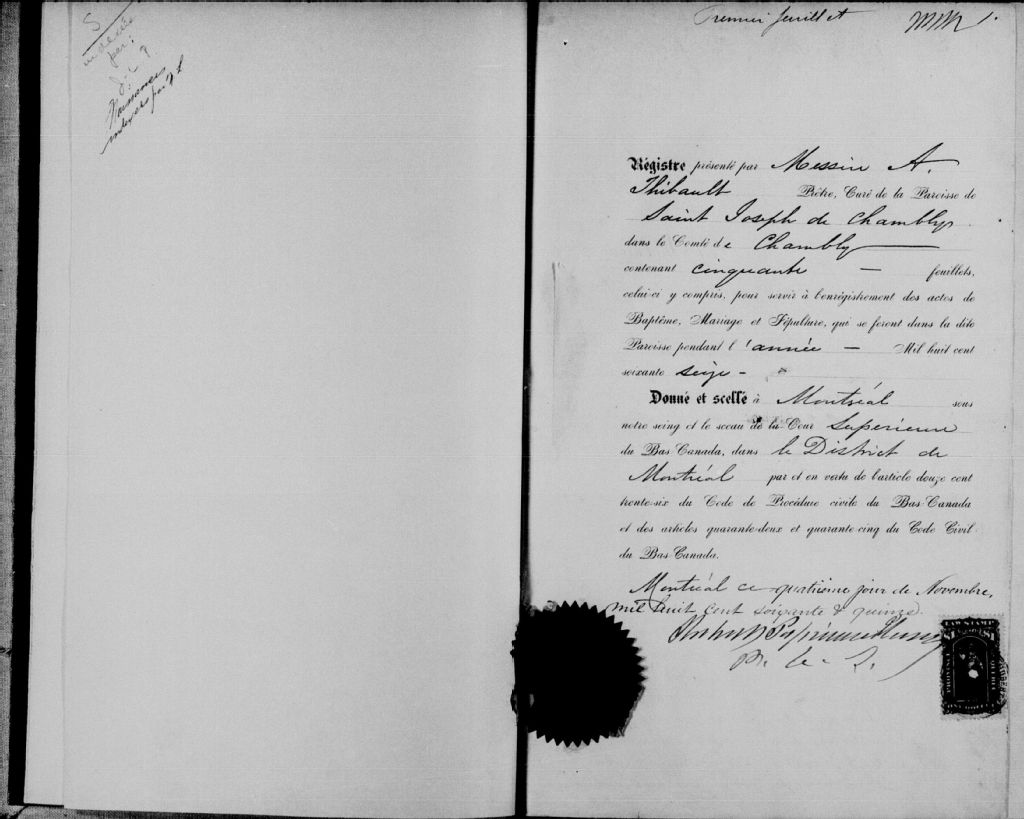 S
par
Naissances
Premier feuillet
Régistre présenté par Messire A.
Thibault Prêtre, Curé de la Paroisse de
Saint Joseph de Chambly
dans le Comté de Chambly
contenant cinquante — feuillets,
celui-ci y compris, pour servir à l'enrégistrement des actes de
Baptême, Mariage et Sépulture, qui se feront dans la dite
Paroisse pendant l'année — Mil huit cent
soixante seize -
Donné et scellé à Montréal sous
notre seing et le sceau de la Cour Superieure
du Bas-Canada, dans le District de
Montréal par et en vertu de l'article douze cent
trente-six du Code de Procédure civile du Bas-Canada
et des articles quarante-deux et quarante-cinq du Code Civil
du Bas-Canada.
Montréal ce quatrième jour de Novembre,
mil huit cent soixante & quinze.
LAW STAMP